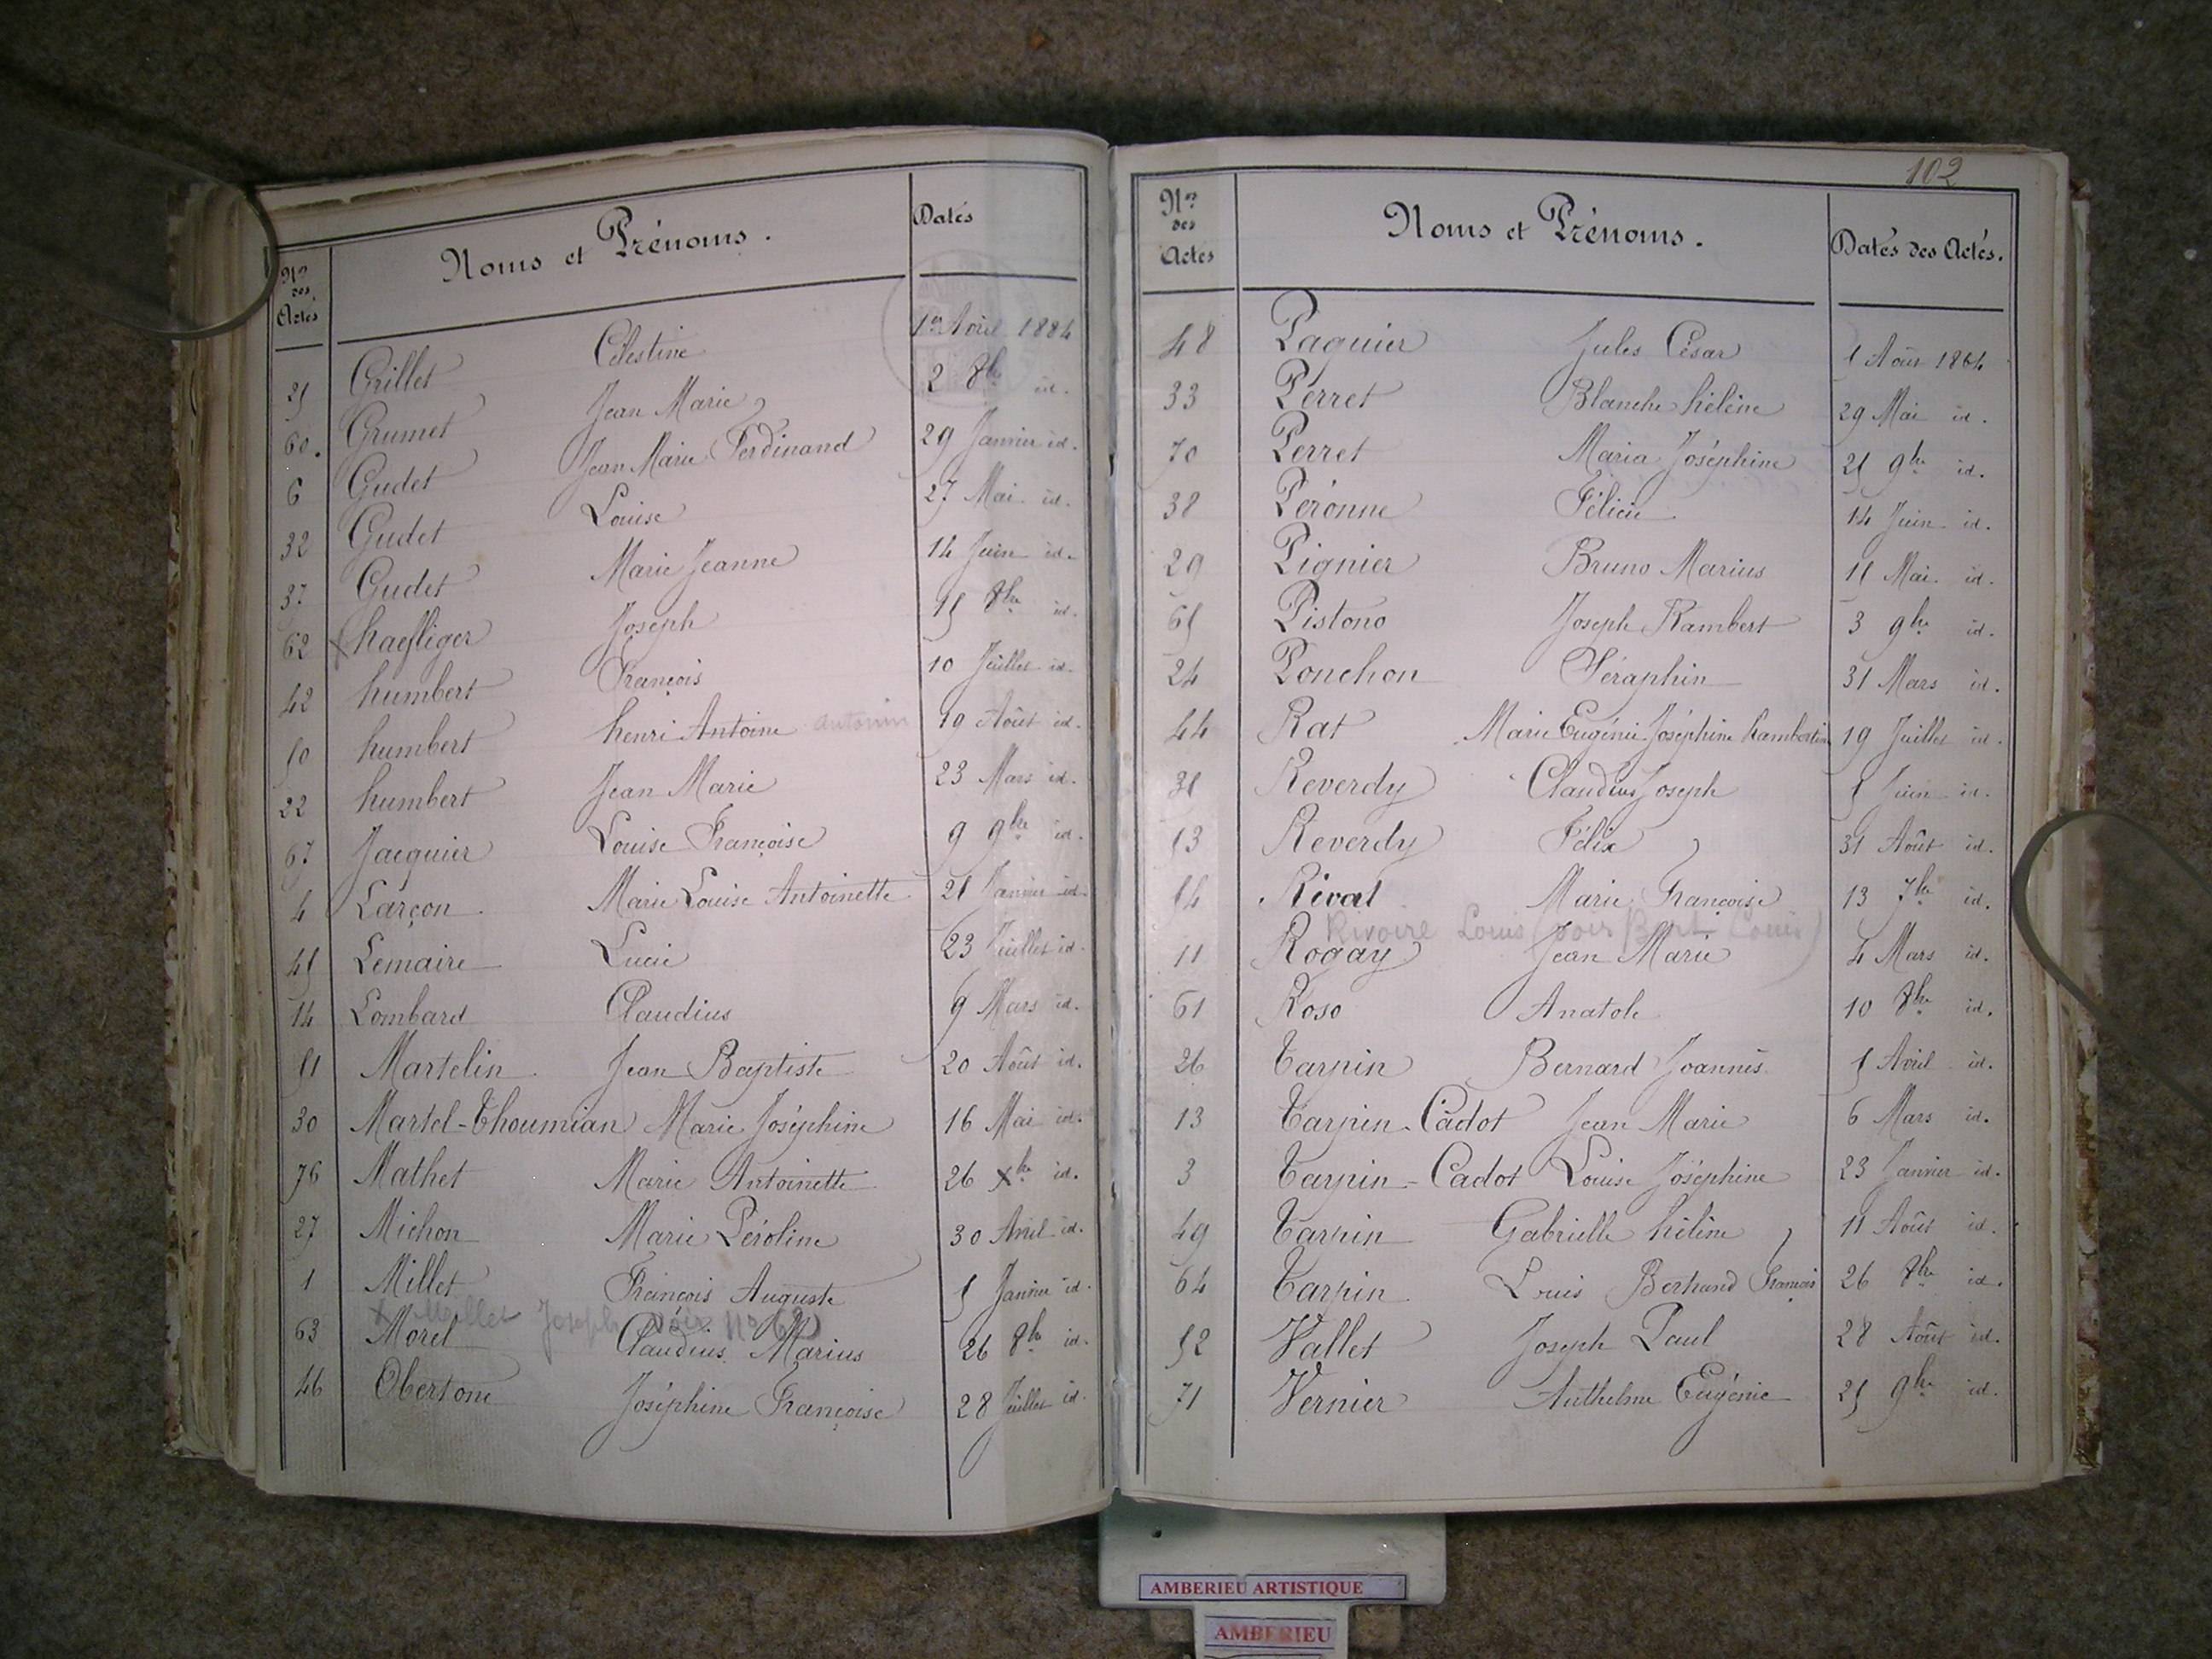 Nos des Actes Noms et Prénoms. Dates
25 Grillet Célestine 1er Avril 1884
60. Grumet Jean Marie 2 8bre id.
6 Gudet Jean Marie Ferdinand 29 Janvier id.
32 Gudet Louise 27 Mai id.
37 Gudet Marie Jeanne 14 Juin id.
62 x haefliger Joseph 15 8bre id.
42 humbert François 10 Juillet id.
50 humbert henri Antoine Antonin 19 Août id.
22 humbert Jean Marie 23 Mars id.
67 Jacquier Louise Françoise 9 9bre id.
4 Larçon Marie Louise Antoinette 25 Janvier id.
45 Lemaire Lucie 23 Juillet id.
14 Lombard Claudius 9 Mars id.
51 Martelin Jean Baptiste 20 Août id.
30 Martel-Thoumian Marie Joséphine 16 Mai id.
76 Mathet Marie Antoinette 26 xbre id.
27 Michon Marie Péroline 30 Avril id.
1 Millet François Auguste 5 Janvier id.
x Muller Joseph voir no 62)
63 Morel Claudius Marius 26 8bre id.
46 Obertone Joséphine Françoise 28 Juillet id.
102
Nos des Actes Noms et Prénoms. Dates des Actes.
48 Paguier Jules César 1 Août 1884
33 Perret Blanche hélène 29 Mai id.
70 Perret Maria Joséphine 25 9bre id.
38 Péronne Félicie 14 Juin id.
29 Pignier Bruno Marius 11 Mai id.
65 Pistono Joseph Rambert 3 9bre id.
24 Ponchon Séraphin 31 Mars id.
44 Rat Marie Eugénie Joséphine Rambertine 19 Juillet id.
35 Reverdy Claudius Joseph 5 Juin id.
53 Reverdy Félix 31 Août id.
54 Rival Marie Françoise 13 7bre id.
Rivoire Louis (voir Bert Louis)
11 Rogay Jean Marie 4 Mars id.
61 Roso Anatole 10 8bre id.
26 Tarpin Bernard Joannès 5 Avril id.
13 Tarpin-Cadot Jean Marie 6 Mars id.
3 Tarpin-Cadot Louise Joséphine 23 Janvier id.
49 Tarpin Gabrielle hélène 11 Août id.
64 Tarpin Louis Bertrand François 26 8bre id.
52 Vallet Joseph Paul 28 Août id.
71 Vernier Anthelme Eugénie 25 9bre id.
AMBERIEU ARTISTIQUE
AMBERIEU